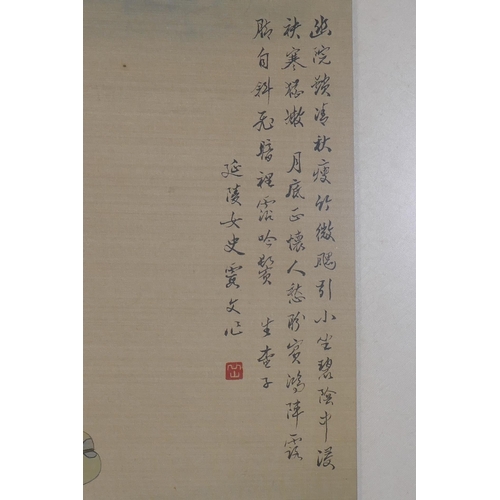 幽院鎖清秋瘦竹微颸引小坐碧陰中浸
袂寒猶嫩 月底正懷人愁盼賓鴻陣露
脚自斜飛暗裡霑吟鬢 生查子
延陵女史霞文作